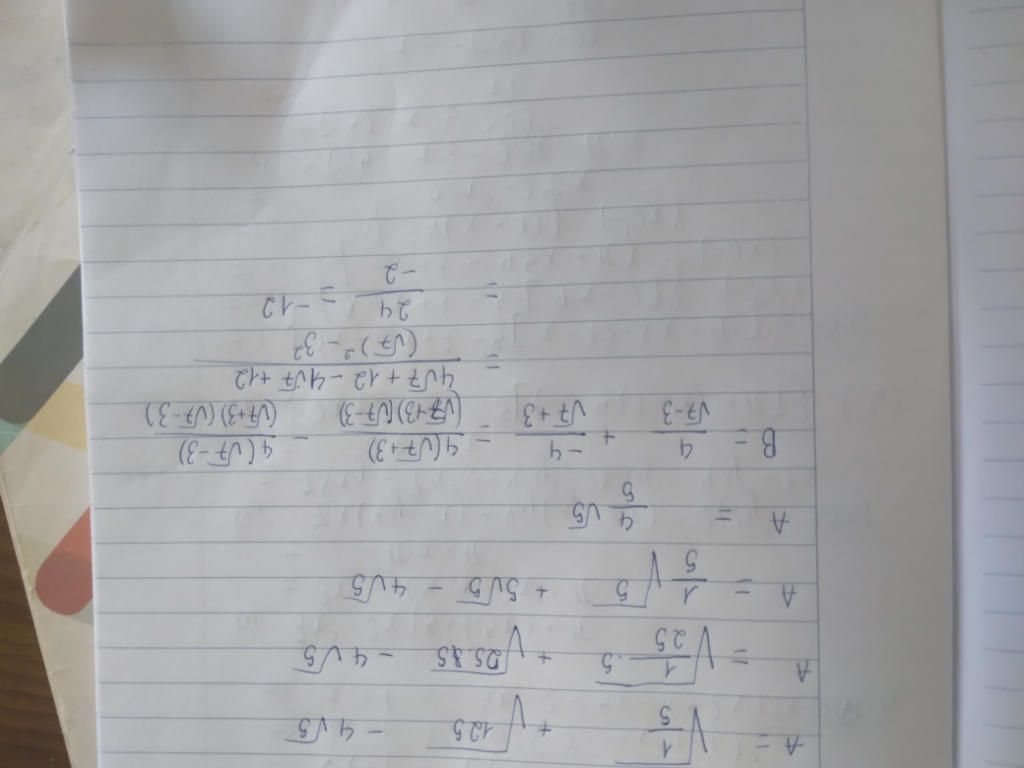 A = √(1/5) + √125 - 4√5
A = √(1/25 . 5) + √(25.5) - 4√5
A = 1/5 √5 + 5√5 - 4√5
A = 4/5 √5
B = 4/(√7-3) + -4/(√7+3) = 4(√7+3)/(√7+3)(√7-3) - 4(√7-3)/(√7+3)(√7-3)
= (4√7 + 12 - 4√7 + 12)/((√7)² - 3²)
= 24/-2 = -12